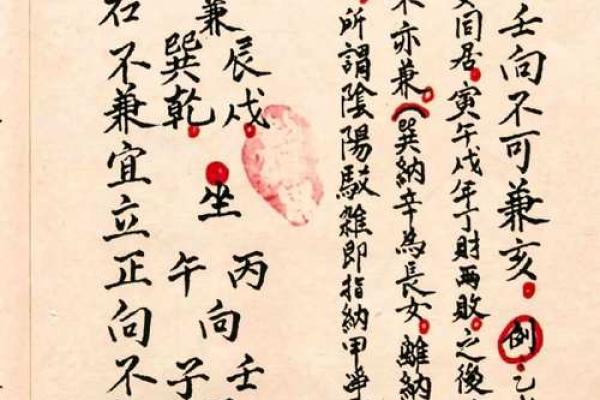 壬向不可兼亥。例乙
同居寅午戌年丁財兩敗。之後
亦兼(巽納辛為長女。離納
所謂陰陽駁雜即指納甲
兼
辰戌
巽乾
坐
丙午
向
壬子
不兼宜立正向不